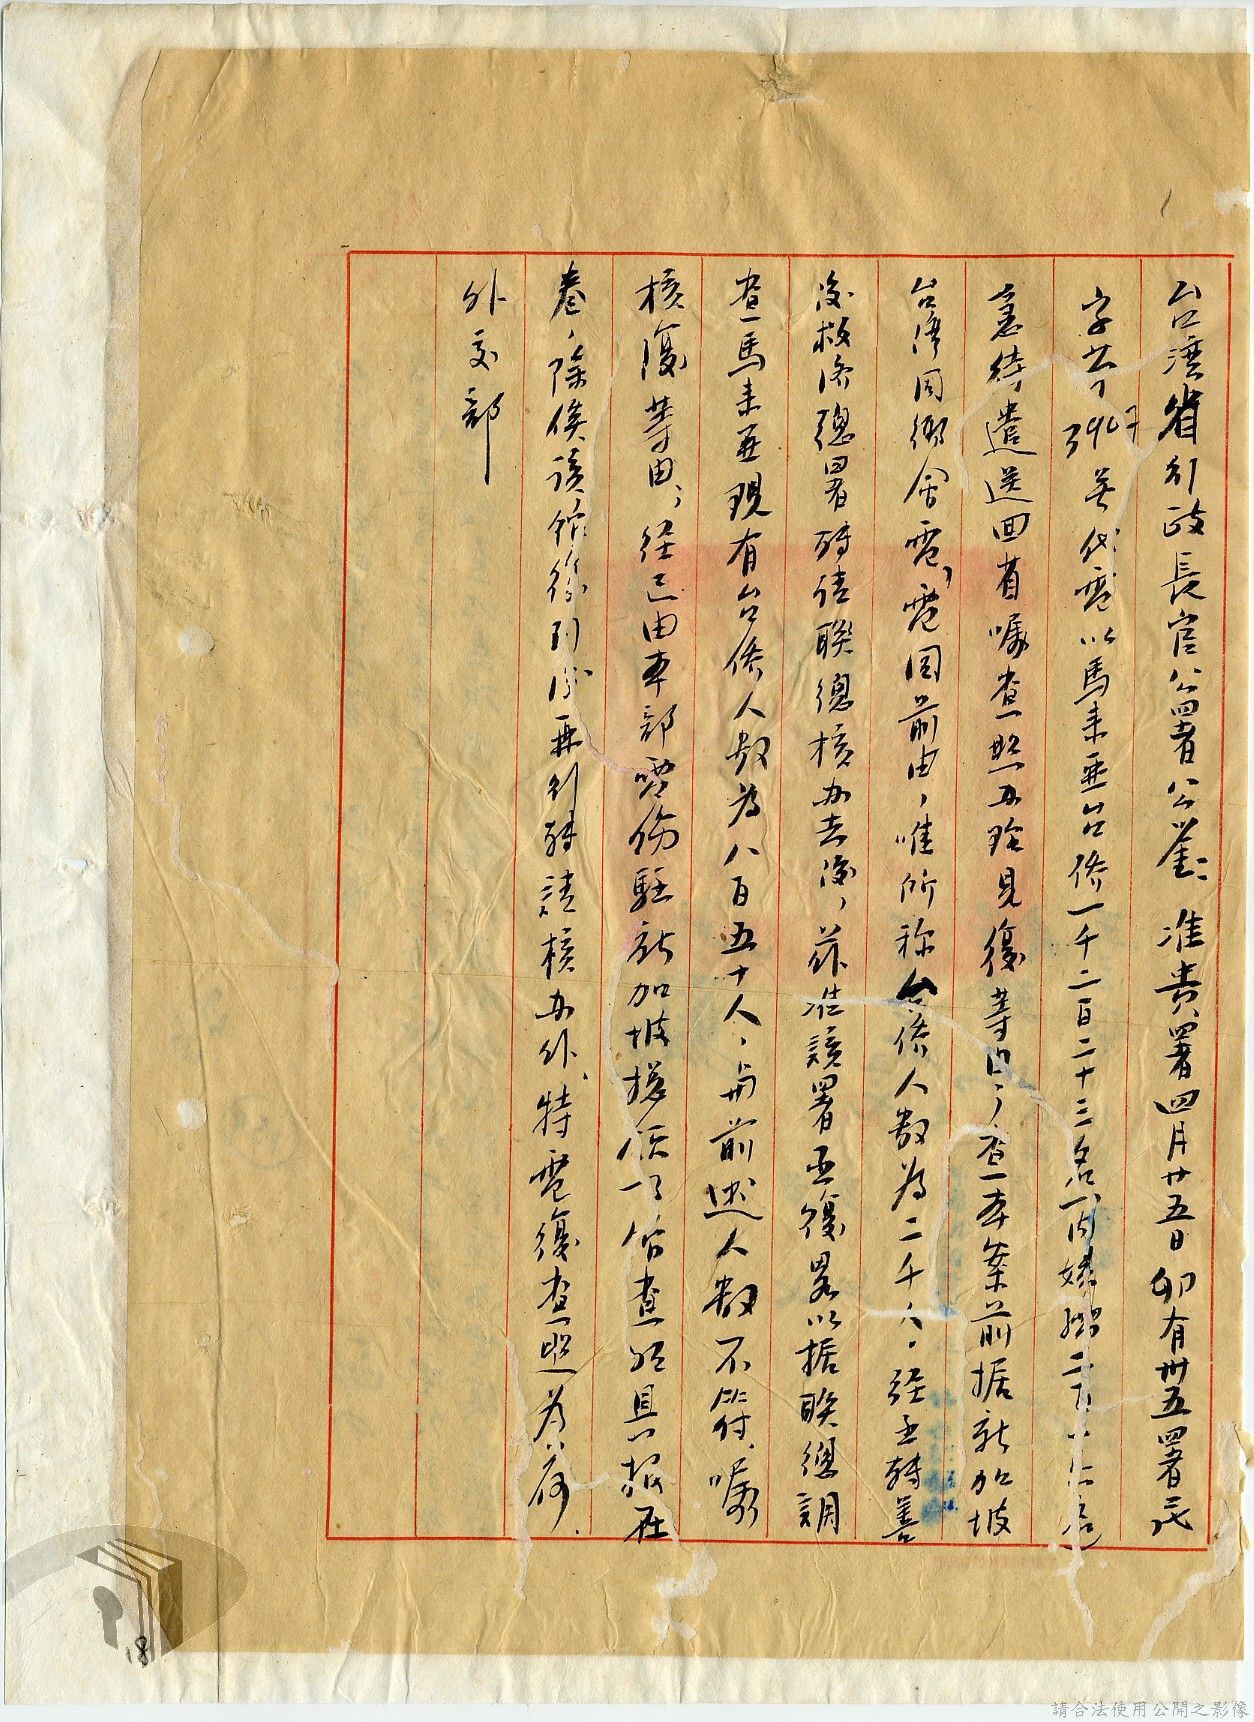 台湾省行政長官公署公鑒：准貴署四月廿五日卯有卅五署民
字第3907号代電以馬來亜台僑一千二百二十三名（内婦孺二百
急待遣送回省嘱查照办理見復等由，查本案前据新加坡
台湾同鄉會電，電同前由，惟所称台僑人数為二千人，経函轉善
後救済總署轉請聯總核办去後，茲准該署函復畧以据聯總調
查馬来亜現有台僑人数為八百五十人，与前述人数不符，嘱
核復等由，経已由本部電飭駐新加坡總領事館查明具報在
卷，除俟該館復到後再行轉請核办外，特電復查照為荷．
外交部
18
請合法使用公開之影像